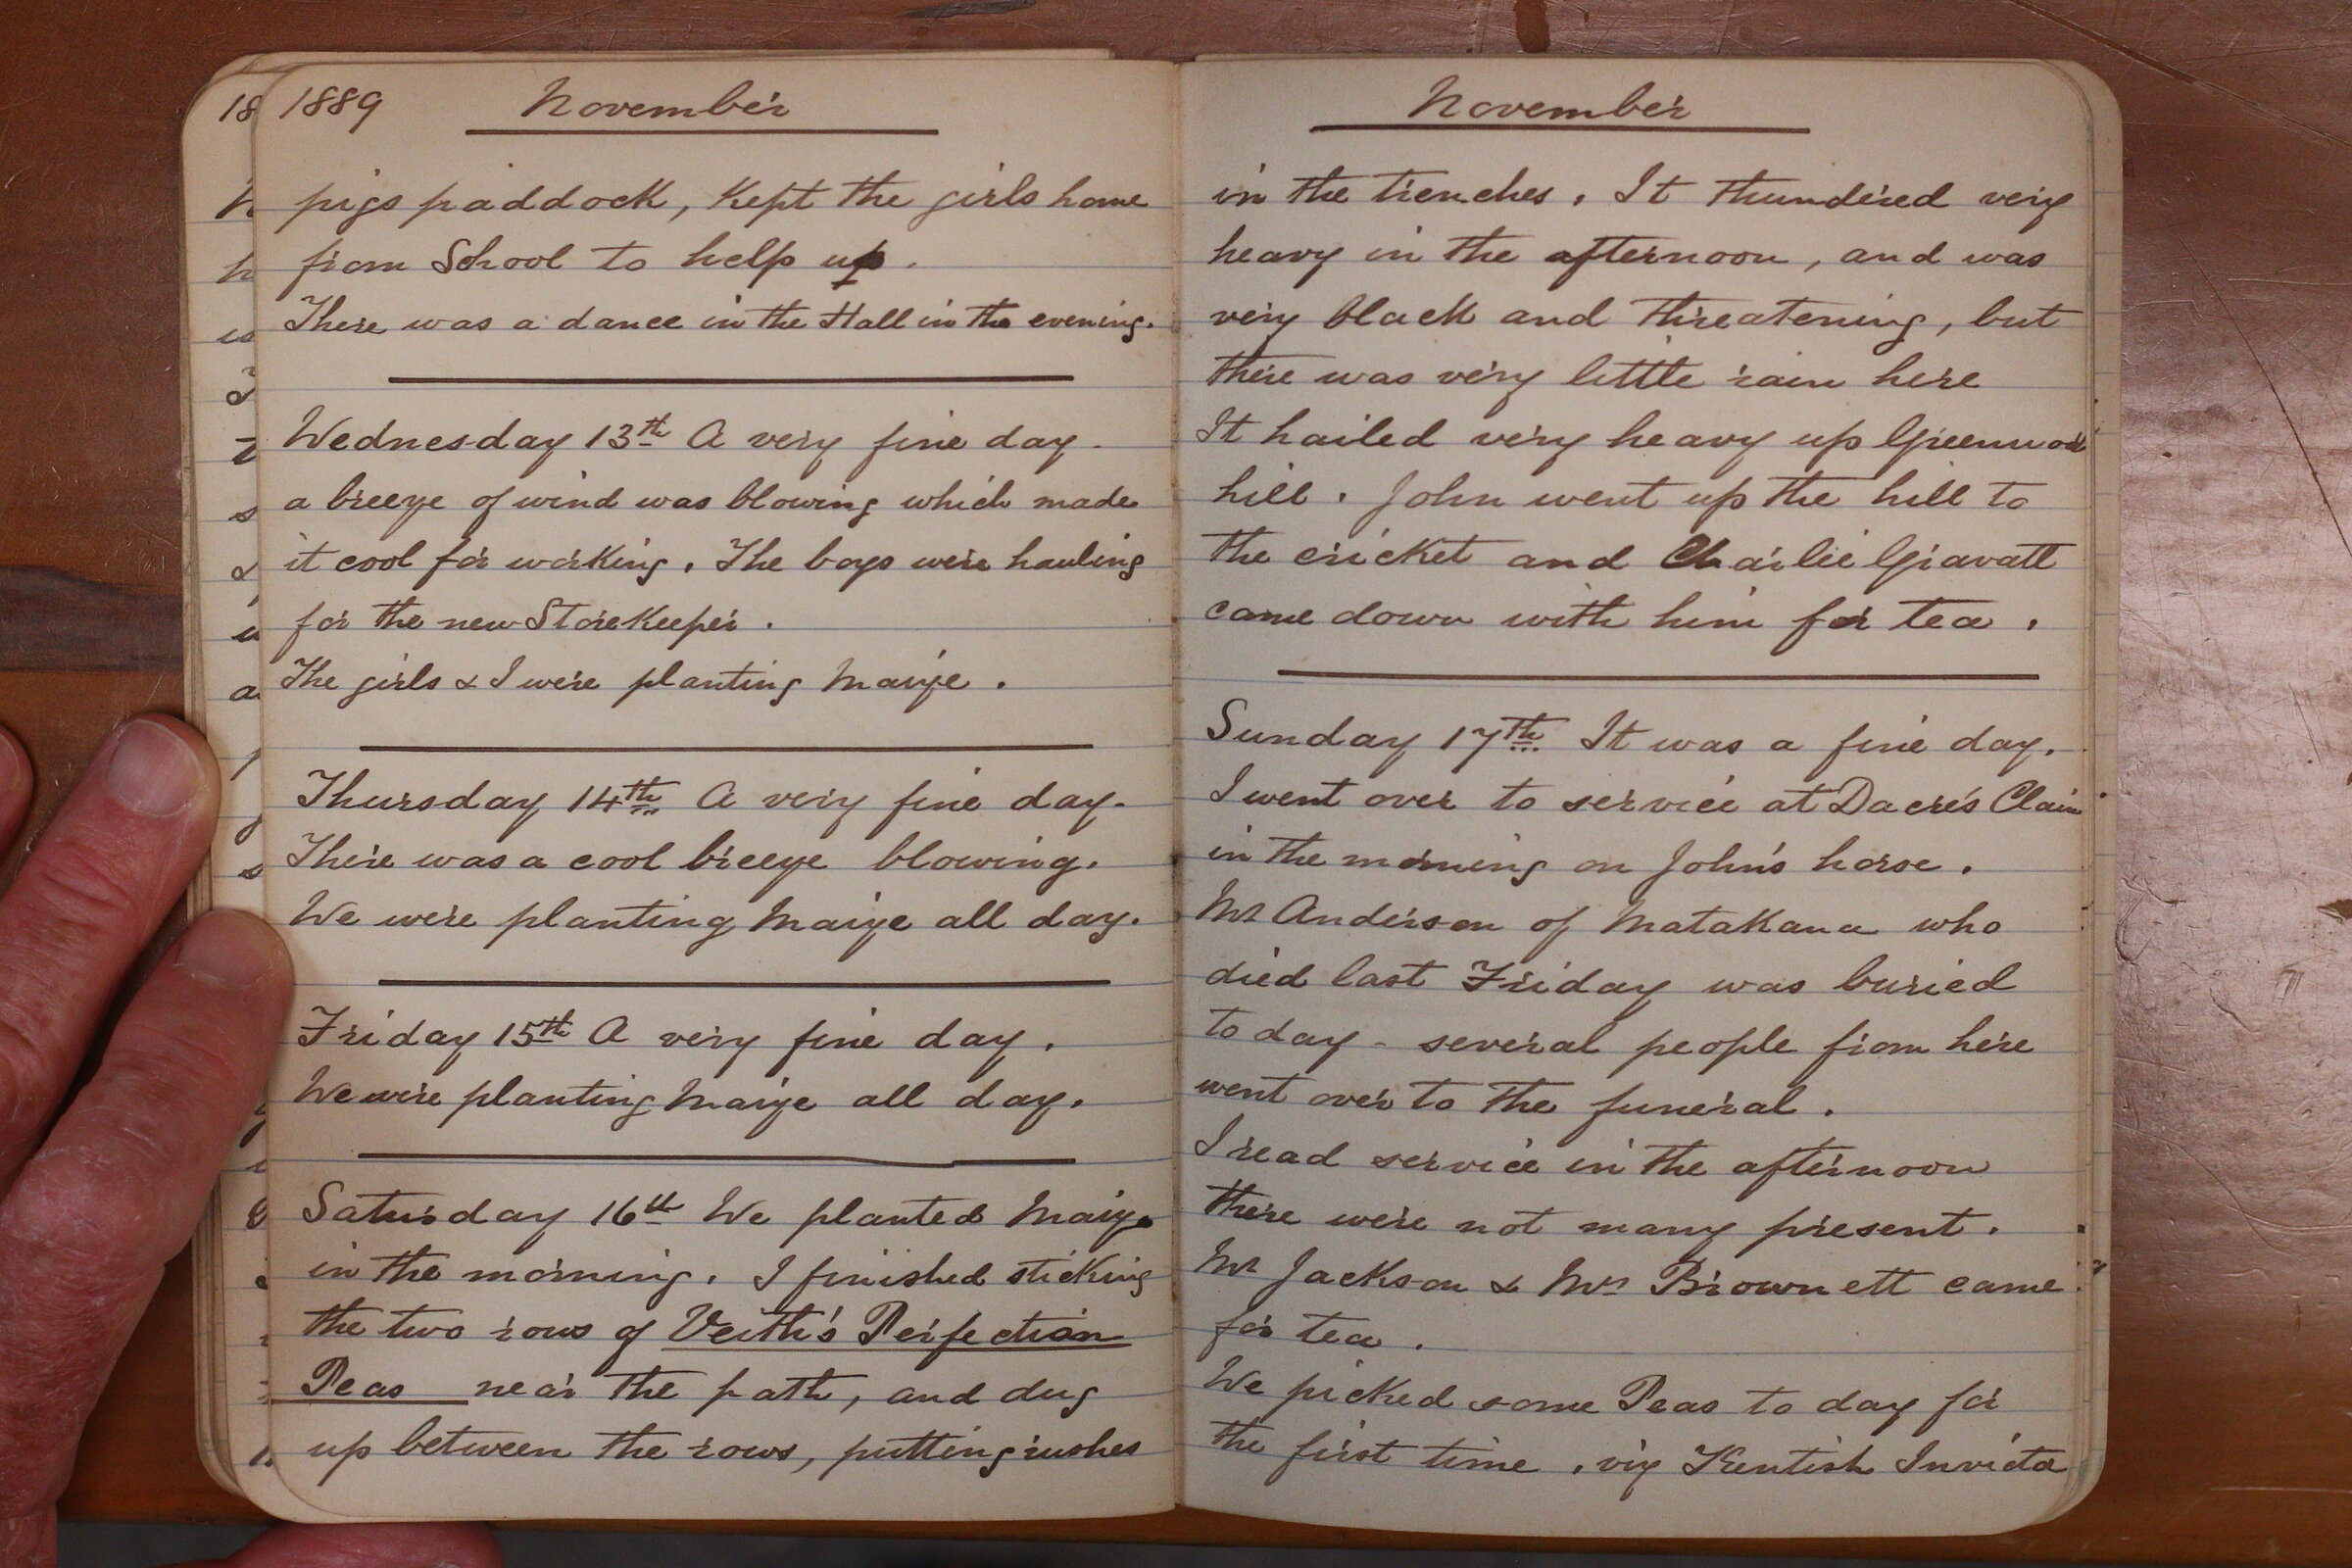 1889 November
pigs paddock, Kept the girls home
from School to help up.
There was a dance in the Hall in the evening.
Wednesday 13th A very fine day.
a breeze of wind was blowing which made
it cool for working. The boys were hauling
for the new StoreKeeper.
The girls & I were planting Maize.
Thursday 14th A very fine day.
There was a cool breeze blowing.
We were planting Maize all day.
Friday 15th A very fine day.
We were planting Maize all day.
Saturday 16th We planted Maize
in the morning. I finished sticking
the two rows of Veith's Perfection
Peas near the path, and dug
up between the rows, putting rushes
November
in the trenches. It thundered very
heavy in the afternoon, and was
very black and threatening, but
there was very little rain here
It hailed very heavy up Greenwood
hill. John went up the hill to
the cricket and Charlie Gravatt
came down with him for tea.
Sunday 17th It was a fine day.
I went over to service at Dacre's Claim
in the morning on John's horse.
Mr Anderson of Matakana who
died last Friday was buried
to day - several people from here
went over to the funeral.
I read service in the afternoon
there were not many present.
Mr Jackson & Mrs Brownett came
for tea.
We picked some Peas to day for
the first time, viz Kentish Invicta